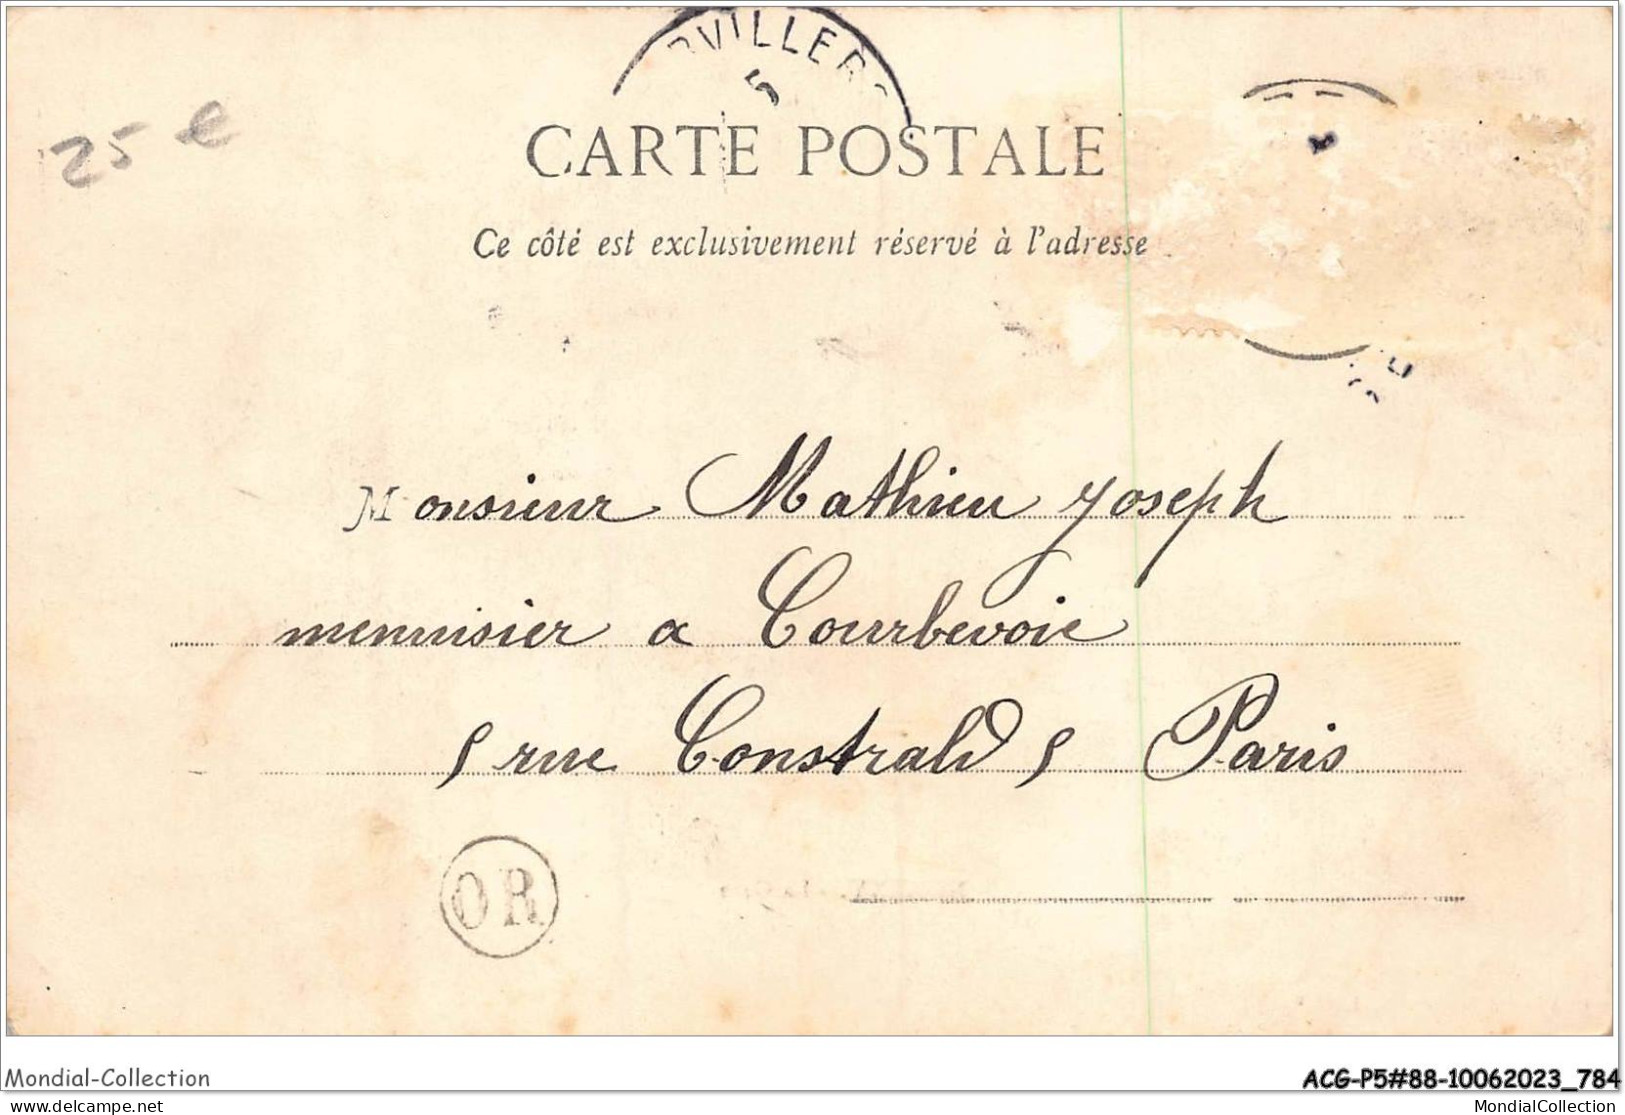 RVILLERS
5
25 €
CARTE POSTALE
Ce côté est exclusivement réservé à l'adresse
Monsieur Mathieu Joseph
menuisier a Courbevoie
5 rue Constrald 5 Paris
OR
Mondial-Collection
ACG-P5#88-10062023_784
delcampe.net
MondialCollection